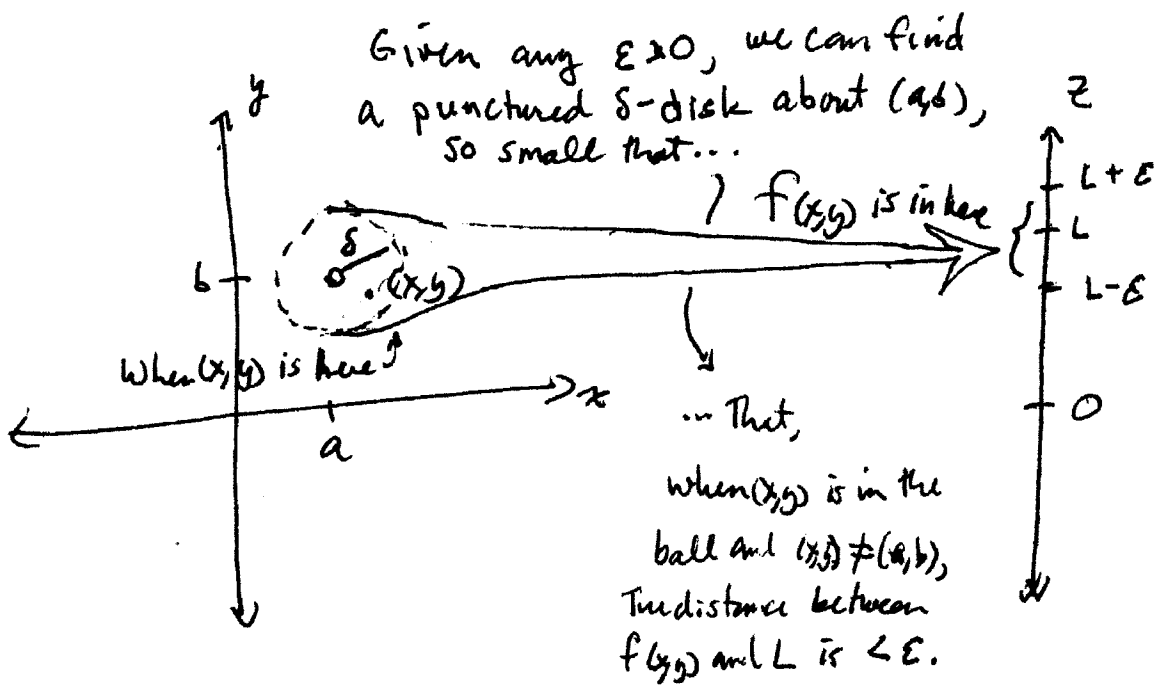 Given any ε>0, we can find
a punctured δ-disk about (a,b),
so small that...
y
z
L+ε
f(x,y) is in here
L
δ
b
(x,y)
L-ε
When (x,y) is here
x
a
0
... That,
when (x,y) is in the
ball and (x,y) ≠ (a,b),
The distance between
f(x,y) and L is < ε.